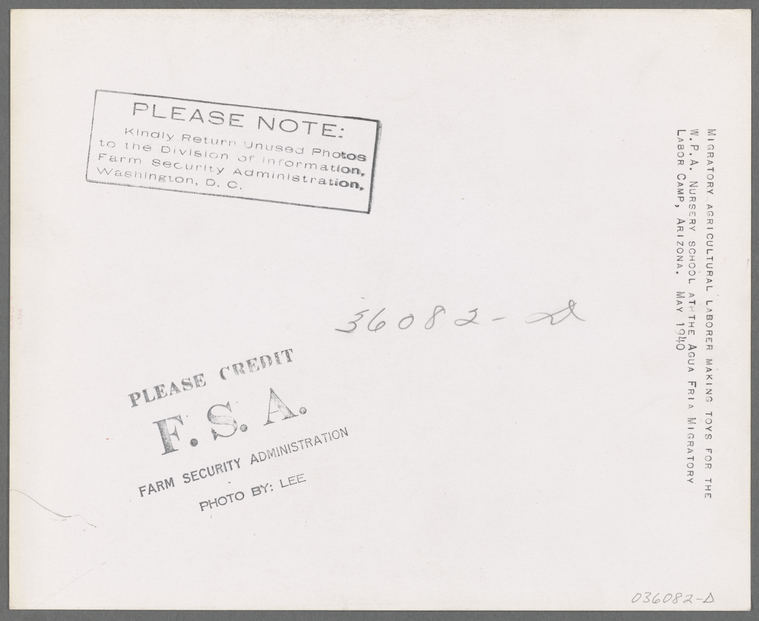 PLEASE NOTE:
Kindly Return Unused Photos
to the Division of Information,
Farm Security Administration,
Washington, D. C.
MIGRATORY AGRICULTURAL LABORER MAKING TOYS FOR THE
W.P.A. NURSERY SCHOOL ATHTHE AGUA FRIA MIGRATORY
LABOR CAMP, ARIZONA. MAY 1940
36082-D
PLEASE CREDIT
F.S.A.
FARM SECURITY ADMINISTRATION
PHOTO BY: LEE
036082-D